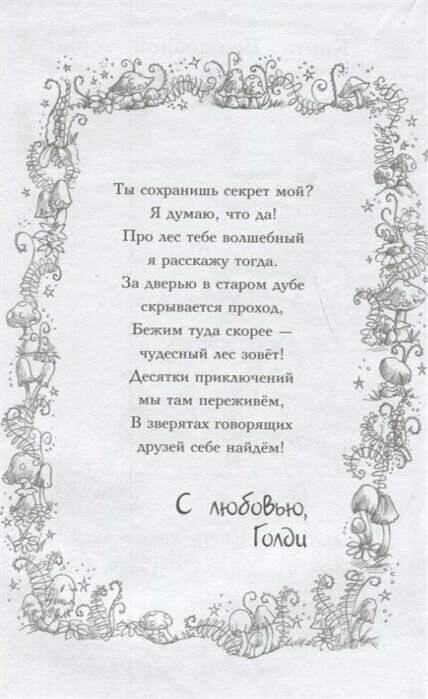 Ты сохранишь секрет мой?
Я думаю, что да!
Про лес тебе волшебный
я расскажу тогда.
За дверью в старом дубе
скрывается проход,
Бежим туда скорее —
чудесный лес зовёт!
Десятки приключений
мы там переживём,
В зверятах говорящих
друзей себе найдём!
С любовью,
Голди